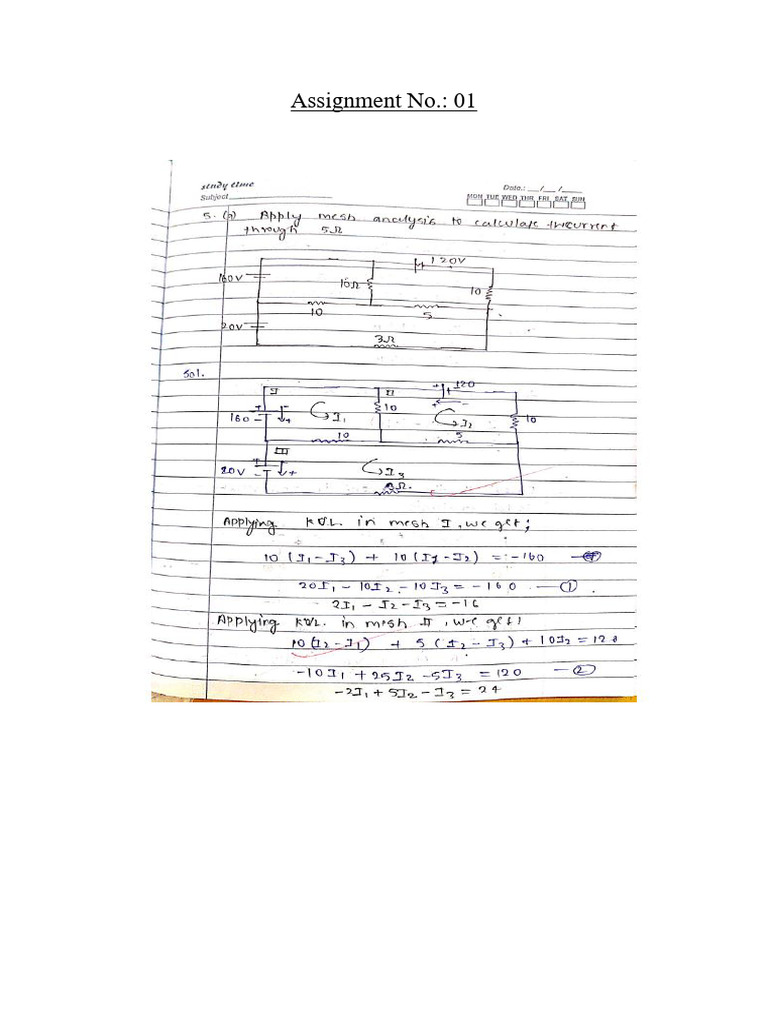 Assignment No.: 01
study time
Date.: __/__/____
Subject
MON TUE WED THR FRI SAT SUN
5. (a) Apply mesh analysis to calculate the current
through 5Ω
120V
160V
10Ω
10
10
5
20V
3Ω
Sol.
I
II
+ 120
160
10
I1
I2
10
10
5
III
20V
I3
3Ω.
Applying KVL in mesh I, we get;
10(I1-I3) + 10(I1-I2) = -160
20I1 - 10I2 - 10I3 = -160 — ①
2I1 - I2 - I3 = -16
Applying KVL in mesh II, we get;
10(I2-I1) + 5(I2-I3) + 10I2 = 120
-10I1 + 25I2 - 5I3 = 120 — ②
-2I1 + 5I2 - I3 = 24